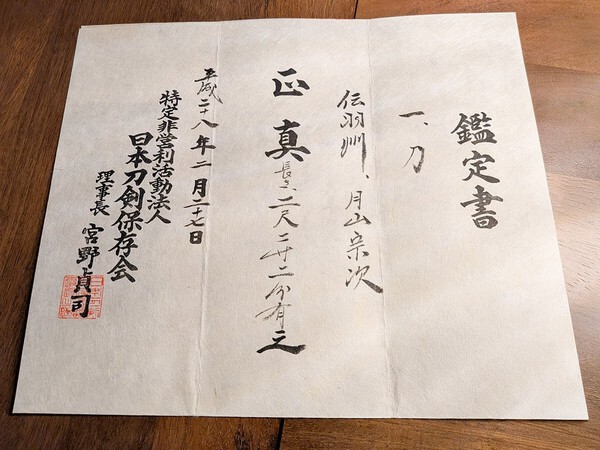 鑑定書
一、刀
伝羽州、月山宗次
正真 長さ、二尺二寸二分有之
平成二十八年二月二十七日
特定非営利活動法人
日本刀剣保存会
理事長 宮野貞司